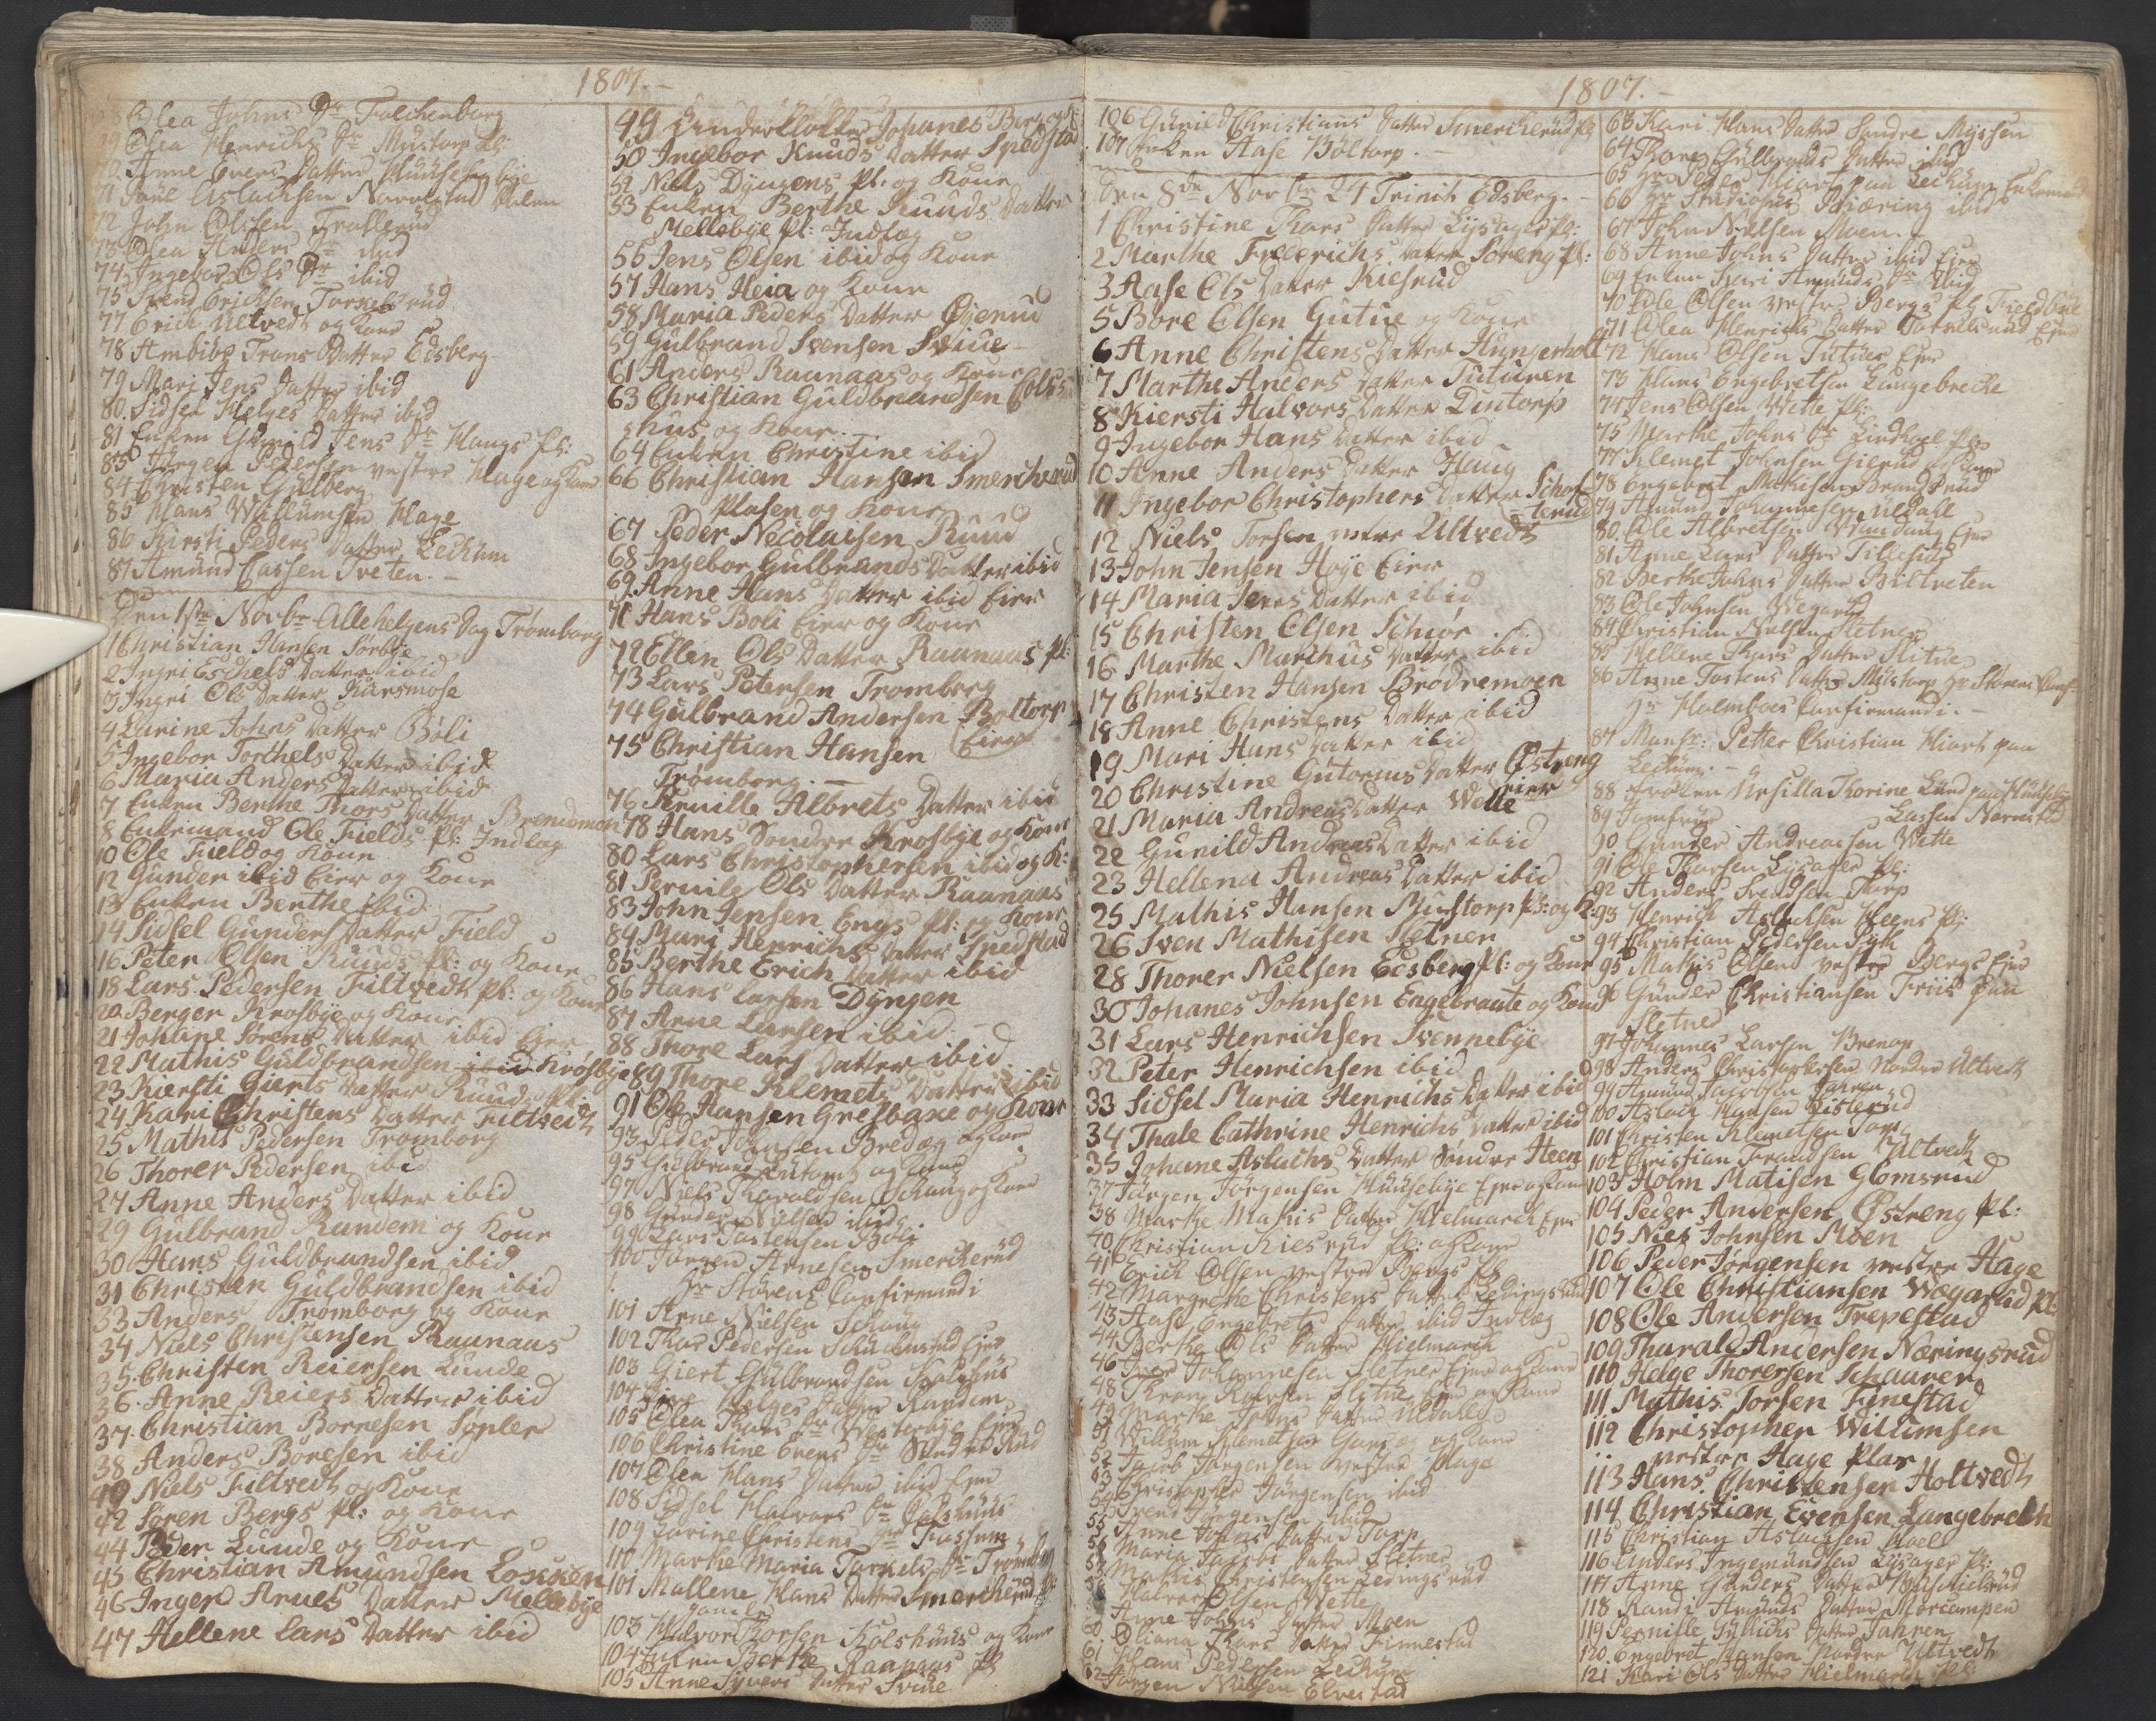 1807.
68 Olea Johns Dr Falchenborg
69 Olea Henrichs Dr Mustorp Pl:
70 Anne Evers Datter Huusebye
71 Poul Aslachsen Narvestad
72 John Olssen Trollerud
73 Olea Anders Dr ibid
74 Ingebor Ols Dr ibid
75 Svend Erichsen Torkelsrud
77 Erich Ultvedt og Kone
78 Ambiør Frans Datter Edsberg
79 Mari Jens Datter ibid
80. Sidsel Helges Datter ibid
81 Enken Gunild Jens Dr Haugs Pl:
83 Jörgen Pedersen vestre Hage og Kone
84 Christen Gulberg
85 Hans Willumsen Hage
86 Kirsti Peders Datter Leckum
87 Amund Lassen Tveten. -
Den 1ste Novbr Allehelgens Dag Trømborg
1 Christian Hansen Sørbye
2 Ingri Eschels Datter ibid
3 Ingri Ols Datter Kärsmose
4 Larine Johns Datter Böli
5 Ingebor Torchels Datter ibid
6 Maria Anders Datter ibid
7 Enken Berthe Thors Datter Brendomon
8 Enkemand Ole Fields Pl: Indlæg
10 Ole Field og Kone
12 Gunder ibid Eier og Kone
13 Enken Berthe ibid
14 Sidsel Gunders Datter Field
16 Peter Olsen Ruuds Pl: og Kone
18 Lars Pedersen Filtvedt Pl: og Kone
20 Berger Krosbye og Kone
21 Johane Sørens Datter ibid Eier
22 Mathis Guldbrandsen ibid Krosbye
23 Kiersti Gierts Datter Ruud Pl:
24 Kari Christens Datter Filtvedt
25 Mathis Pedersen Tromborg
26 Thorer Pedersen ibid
27 Anne Anders Datter ibid
29 Gulbrand Rundem og Kone
30 Hans Guldbrandsen ibid
31 Christen Guldbrandsen ibid
33 Anders Trømborg og Kone
34 Niels Christensen Raanaas
35. Christen Reiersen Lunde
36. Anne Reiers Datter ibid
37. Christian Borresen Sopler
38 Anders Boresen ibid
40 Niels Filtvedt og Kone
42 Søren Bergs Pl: og Kone
44 Peder Lunde og Kone
45 Christian Amundsen Loskken
46 Inger Arnes Datter Mellebye
47 Hellene Lars Datter ibid
49 Johanes Bergs Pl:
50 Ingebor Knuds Datter Spedstad
52 Niels Dÿngens Pl: og Kone
53 Enken Berthe Knuds Datter
Mellebye Pl: Indlæg
55 Jens Olsen ibid og Kone
57 Hans Heia og Kone
58 Maria Peders Datter Øierud
59 Gulbrand Svensen Sviue -
61 Anders Raanaas og Kone
63 Christian Guldbrandsen Cols
hus og Kone. -
64 Enken Christine ibid
66 Christian Hansen Smercherud
Plasen og Kone
67 Peder Necolaisen Ruud
68 Ingebor Gulbrands Datter ibid
69. Anne Hans Datter ibid Eier
71 Hans Boli Eier og Kone
72 Ellen Ols Datter Raanaas Pl:
73 Lars Petersen Tromborg
74 Gulbrand Andersen Boltorp
Eier
75 Christian Hansen
Trømborg. -
76 Pernille Albrets Datter ibid
78 Hans Søndre Krosbye og Kone
80 Lars Christophersen ibid og K:
81 Pernile Ols Datter Raanaas
83 John Jensen Engs Pl: og Kone
84 Mari Henrichs Datter Spedstad
85 Berthe Erich Datter ibid
86 Hans Larsen Dÿngen
87 Arne Larsen ibid -
88 Thore Lars Datter ibid
89 Thore Klemets Datter ibid
91 Ole Hansen Gresbaxe og Kone
93 Peder Johnsen Bredæg og Kone
95 Gulbrand og Kone
97 Niels Tharaldsen Schaug og Kone
98 Gunder Nielsen ibid
99 Lars Tostensen Böli
100 Jørgen Arnesen Smercherud
Hr Störens Confirmandi
101 Arne Nielsen Schaug
102 Thor Pedersen Eier
103 Giert Gulbrandsen Kolshuus
104 Helges Datter Rundem
105 Olea Thors Dr Westerbye Eier
106 Christine Evens Dr Rud
107 Olea Hans Datter ibid Eier
108 Sidsel Halvors Dr Colshuus
109 Larine Christens Dr Fossum
110 Marthe Maria Torkels Dr Trömborg
101 Mallene Hans Datter Smercherud Pl:
gamle
103 Halvor Torsen Kolshuus og Kone
104 Enken Berthe Raanaas Pl
105 Anne Syvers Datter Sviue
1807. -
106 Gunild Christians Datter Smercherud Pl
107 Enken Aase Böltorp. -
Den 8de Novbr 24 Trinit Edsberg. -
1 Christine Thors Datter Lysager Pl:
2 Marthe Frederichs Datter Soreng Pl:
3 Aase Ols Datter Kiesrud
5 Bore Olsen Gutue og Kone
6 Anne Christens Datter Hungerholt
7 Marthe Anders Datter Tuturen
8 Kiersti Halvors Datter Dintorp
9 Ingebor Hans Datter ibid -
10 Anne Anders Datter Haug
11 Ingebor Christophers Datter Schof-
terud
12 Niels Torsen vestre Ultvedt
13 John Jensen Høje Eier
14 Maria Jens Datter ibid
15 Christen Olsen Schiør
16 Marthe Marthus Datter ibid
17 Christen Hansen Brödremoen
18 Anne Christens Datter ibid
19 Mari Hans Datter ibid
20 Christine Gutorms Datter Østreng
eier
21 Maria Andreas Datter Welle
22 Gunild Andreas Datter ibid
23 Hellena Andreas Datter ibid
25 Mathis Hansen Mustorp Pl: og K:
26 Iven Mathisen Sletner
28 Thorer Nielsen Edsberg Pl: og Kone
30 Johanes Johnsen Engebraate og Kone
31 Lars Henrichsen Svennebye
32 Peter Henrichsen ibid
33 Sidsel Maria Henrichs Datter ibid
34 Thale Cathrine Henrichs Datter ibid
35 Johane Aslachs Datter Søndre Heen
37 Jörgen Jörgensen Huusebye Eier og Kone
38 Marthe Mathis Datter Hielmarck Eier
40 Christian Kiesrud Pl: og Kone
41 Erich Olsen vestre Bergs Pl
42 Margrethe Christens Datter Ledingsrud
43 Aase Engebrets Datter ibid Indlæg
44 Berthe Ols Datter Hielmarck
46 Iver Johannesen Sletner Eier og Kone
48 og Kone
49 Marthe Datter Uldahl
51 Willum Klemetsen og Kone
52 Jacob Jörgensen vestre Hage
53 Christopher Jörgensen ibid
54 Svend Jörgensen ibid
55 Anne Johns Datter Torp
56 Maria Jacobs Datter Sletner
57 Mathis Christensen Ledingsrud
58 Halvor Olsen Wette
59 Anne Johns Datter Moen
60 Eliana Thors Datter Finnestad
61 Hans Pedersen Leckum
62 Jörgen Nielsen Elvestad
63 Kari Hans Datter Søndre Myssen
64 Thore Gulbrands Datter ibid
65 Hr Peder Hiort paa Leckum Enkemand
66 Hr Studiosus Schiæring ibid
67 John Nielsen Moen. -
68 Anne Johns Datter ibid Eier
69 Enken Kari Amunds Dr ibid
70 Ole Olsen vestre Bergs Pl
71 Olea Henrichs Datter Torkelsrud Eier
72 Hans Olsen Tutuer Eier
73 Hans Engebretsen Langebrecke
74 Jens Olsen Wette Pl:
75 Marthe Johns Dr Lindhoel Pl:
77 Klemet Johnsen Gierud og Kone
78 Engebret Mathisen Brandsrud
79 Amund Johannesen Uldahl
80. Ole Albretsen Eier
81 Anne Lars Datter Tillerud
82 Berthe Johns Datter Biltveten
83 Ole Johnsen Wegarud
84 Christian Nielsen Sletner
85 Hellene Thors Datter Slitue
86 Anne Tostens Datter Mystorp Hr Störens Conf:
Hr Holmboes Confirmandi. -
87 Monsr: Petter Christian Hiort paa
Leckum. -
88 Frøken Ursilla Thorine Lund paa
89 Jomfrue Lassen Narvestad
90 Gunder Andreassen Wette
91 Ole Thorsen Lysager Pl:
92 Anders Svendsen Torp
93 Henrich Aslachsen Heens Pl:
94 Christian Pedersen
95 Mathis Olsen vestre Bergs Eier
96 Gunder Christiansen Friis paa
Sletner
97 Johannes Larsen Brenop
98 Anders Christophersen Nordre Ultvedt
99 Amund Jacobsen Jahren
100 Aslach Hansen Kislerud
101 Christen Klemetsen Torp
102 Christian Frandsen Ultvedt
103 Holm Matisen Glomsrud
104 Peder Andersen Østreng Pl:
105 Niels Johnsen Moen
106 Peder Jørgensen vestre Hage
107 Ole Christiansen Wegarud Pl
108 Ole Andersen Trepestad
109 Tharald Andersen Næringsrud
110 Helge Thorersen Schauren
111 Mathis Torsen Finestad
112 Christopher Willumsen
vestre Hage Plas
113 Hans Christensen Holtvedt
114 Christian Evensen Langebrech
115 Christian Aslachsen Moell
116 Anders Ingemundsen Lysager Pl:
117 Anne Gunders Datter
118 Randi Amunds Datter Morcampen
119 Pernille Datter Jahren
120. Engebret Hansen Nordre Ultvedt
121 Kari Ols Datter Hielmarck Pl: